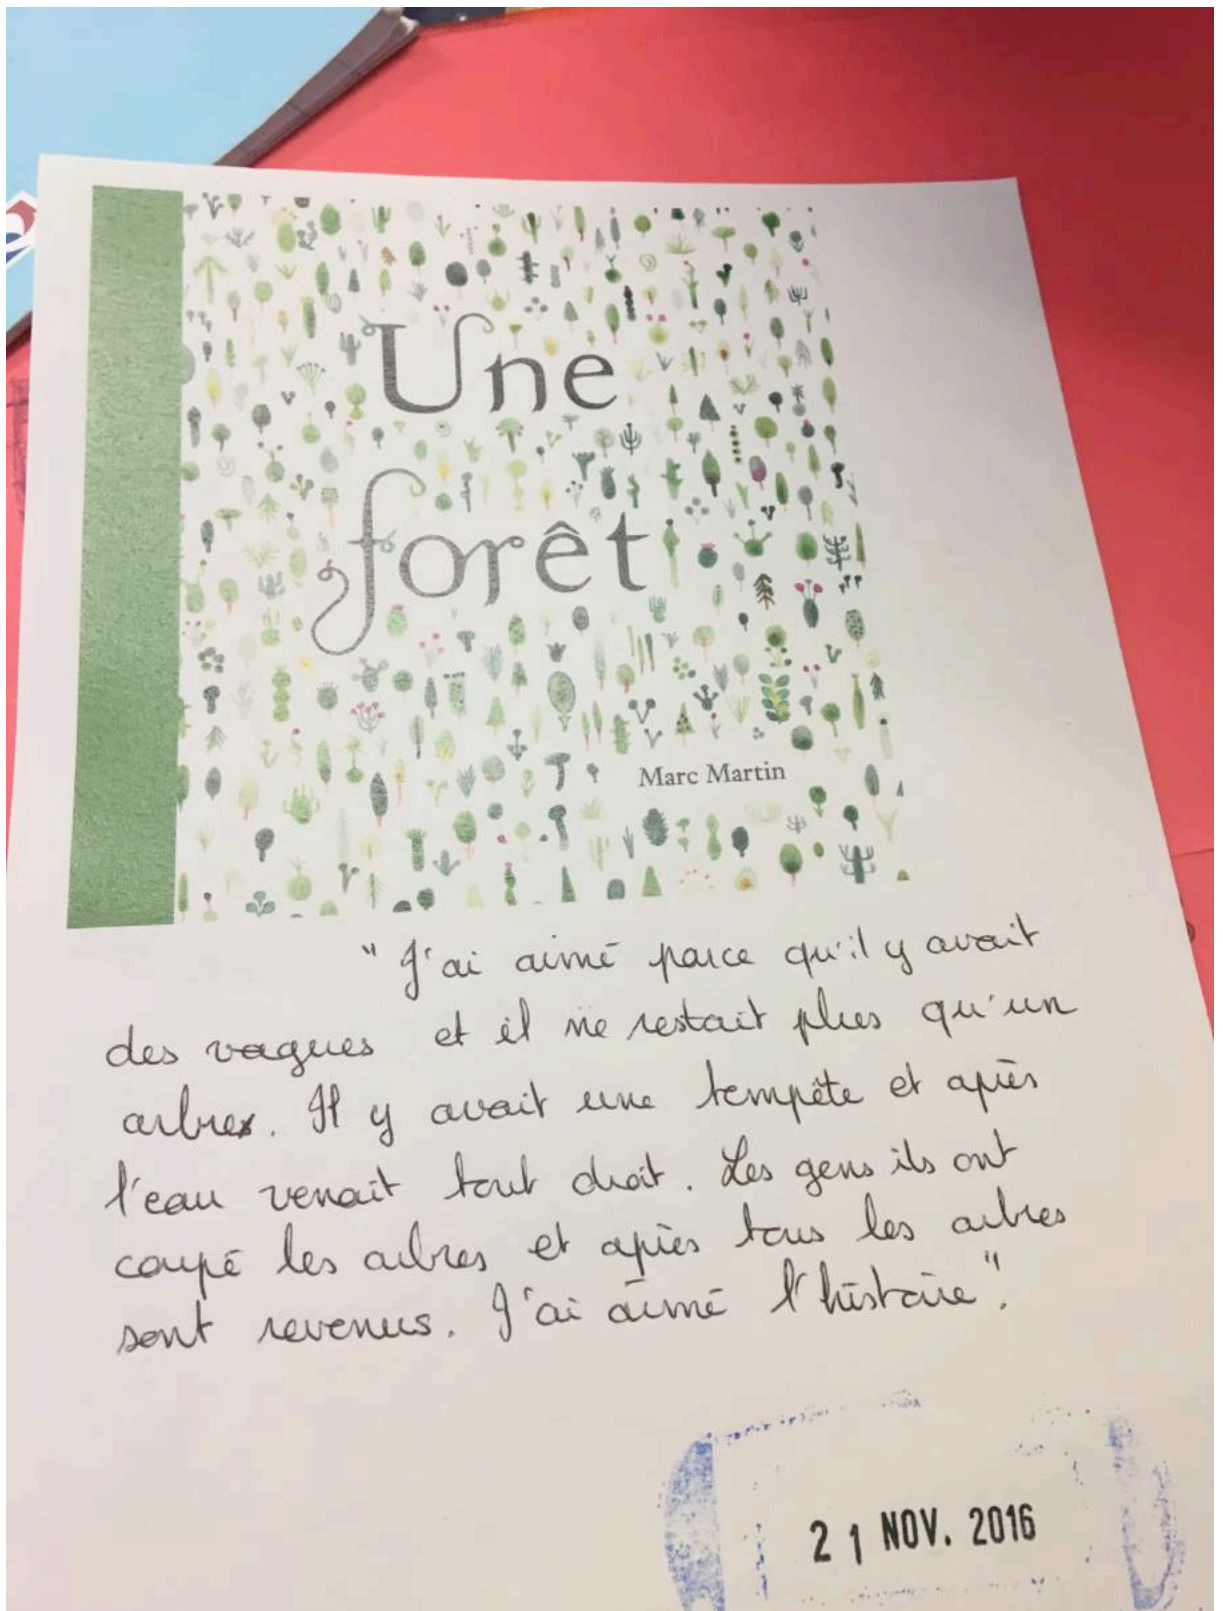 Une
forêt
Marc Martin
" J'ai aimé parce qu'il y avait
des vagues et il ne restait plus qu'un
arbre. Il y avait une tempête et après
l'eau venait tout droit. Les gens ils ont
coupé les arbres et après tous les arbres
sont revenus. J'ai aimé l'histoire".
21 NOV. 2016